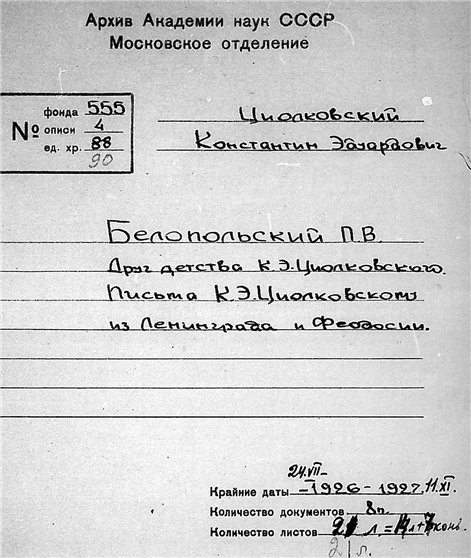 Архив Академии наук СССР
Московское отделение
№
фонда 555
описи 4
ед. хр. 88
90
Циолковский
Константин Эдуардович
Белопольский П.В.
Друг детства К.Э.Циолковского.
Письма К.Э.Циолковскому
из Ленинграда и Феодосии.
24.VII–
Крайние даты –1926–1927, 11.XI.
Количество документов 8п.
Количество листов л = л+7конв.
21 л.